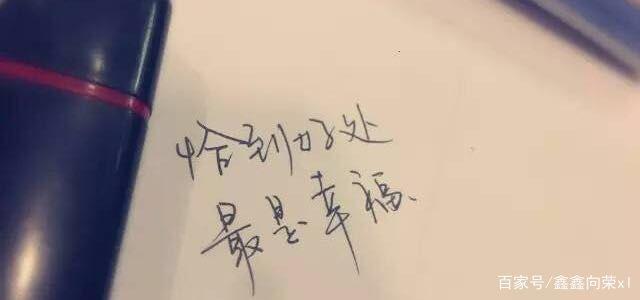 恰到好处
最是幸福、
百家号/鑫鑫向荣xl